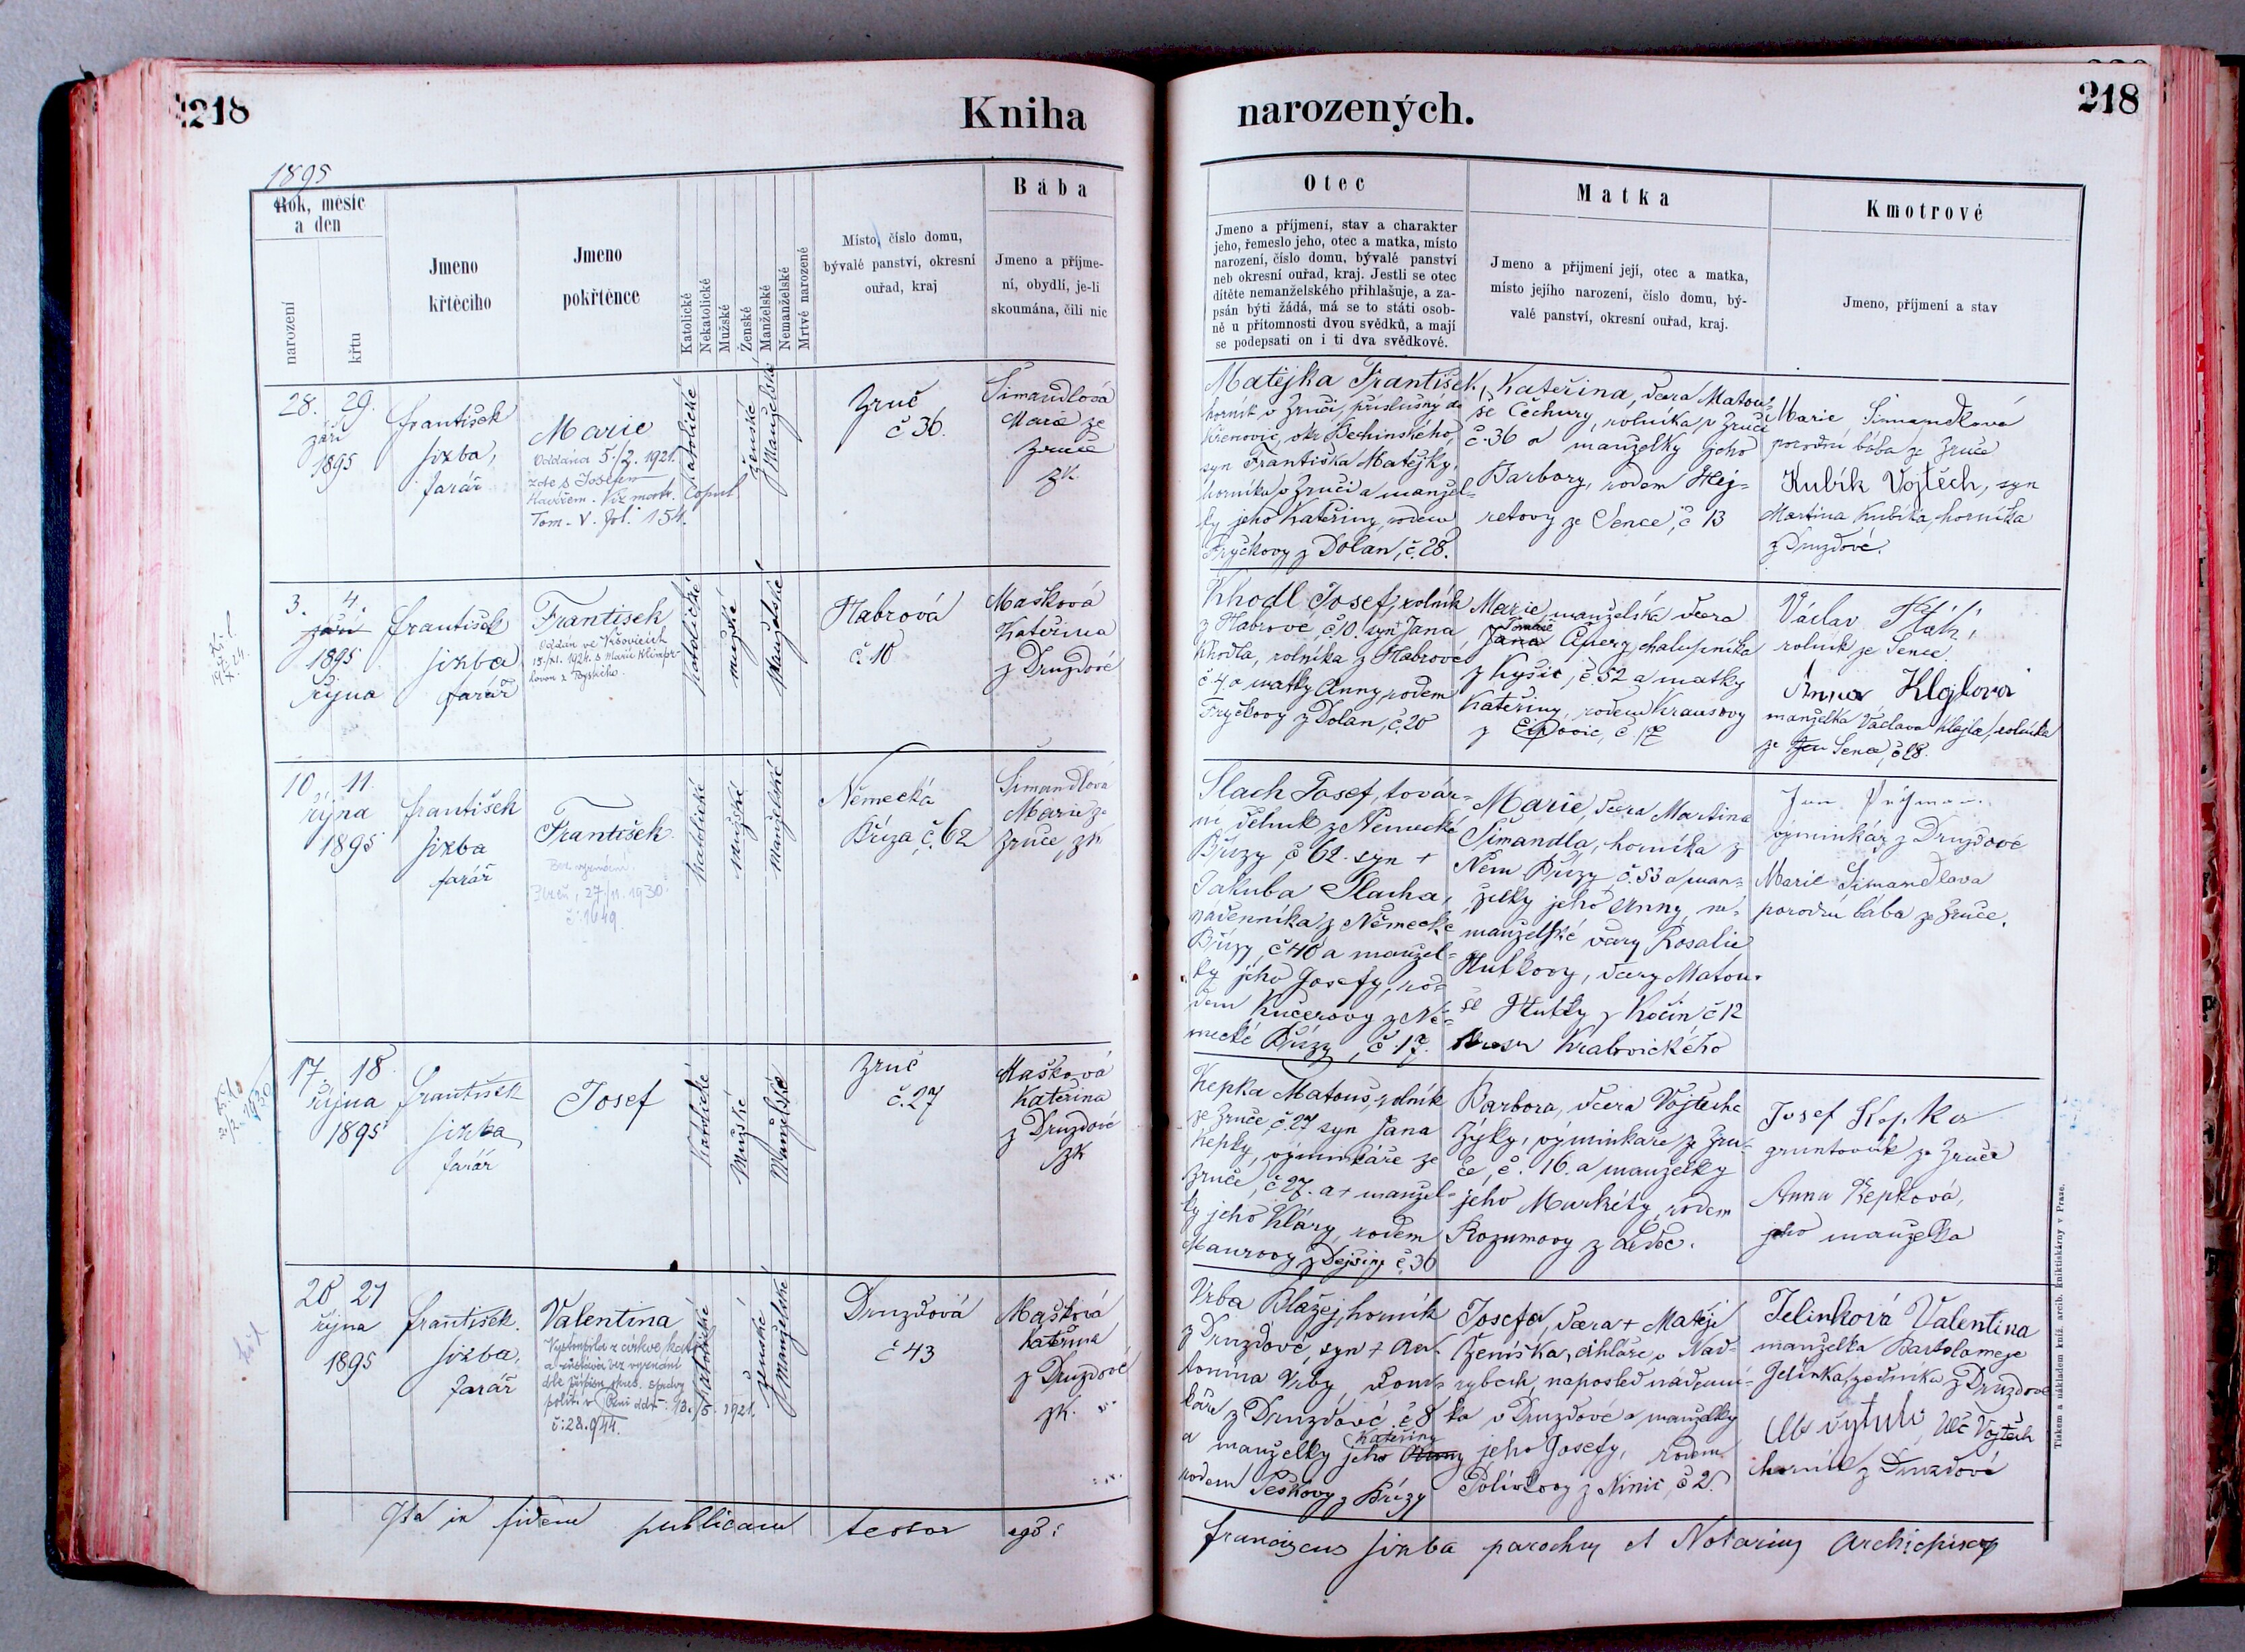 218
Kniha
narozených.
218
1895
Rok, měsíc
a den
narození
křtu
Jmeno
křtěcího
Jmeno
pokřtěnce
Katolické
Nekatolické
Mužské
Ženské
Manželské
Nemanželské
Mrtvě narozené
Místo, číslo domu,
bývalé panství, okresní
ouřad, kraj
Bába
Jmeno a příjme-
ní, obydlí, je-li
skoumána, čili nic
Otec
Jmeno a příjmení, stav a charakter
jeho, řemeslo jeho, otec a matka, místo
narození, číslo domu, bývalé panství
neb okresní ouřad, kraj. Jestli se otec
dítěte nemanželského přihlašuje, a za-
psán býti žádá, má se to státi osob-
ně u přítomnosti dvou svědků, a mají
se podepsati on i ti dva svědkové.
Matka
Jmeno a příjmení její, otec a matka,
místo jejího narození, číslo domu, bý-
valé panství, okresní ouřad, kraj.
Kmotrové
Jmeno, příjmení a stav
28. 29.
září
1895
František
farář
Marie
Oddána 5./2. 1921.
zde s Josefem
Tom. V. fol. 154.
katolické
ženské
Manželské
Zruč
č 36.
Šimandlová
Marie ze
Zruče
zk.
Matějka František,
horník v Zruči, příslušný do
Křenovic, okr. Bechinského,
syn Františka Matějky,
horníka v Zruči a manžel-
ky jeho Kateřiny, rodem
Fryčkovy z Dolan, č. 28.
Kateřina, dcera Matou-
še Čechury, rolníka v Zruči
č. 36 a manželky jeho
Barbory, rodem Hej-
retovy ze Sence, č 13
Marie Šimandlová
porodní bába ze Zruče
Kubík Vojtěch, syn
Martina Kubíka, horníka
z Druzdové.
3. 4.
září
1895
října
František
farář
František
Oddán ve Vršovicích
katolické
mužské
Manželské
Habrová
č. 10
Mašková
Kateřina
z Druzdové
Khodl Josef, rolník
z Habrové, č 10. syn Jana
Khodla, rolníka z Habrové
č. 4. a matky Anny, rodem
Fryčkovy z Dolan, č. 20
Marie, manželská dcera
Tomáše
Jana
chalupníka
z Kyšic, č. 52 a matky
Kateřiny, rodem Krausovy
Václav
rolník ze Sence
Anna Klajlová
manželka Václava Klajla, rolníka
ze Sence, č 28.
10. 11.
října
1895
František
farář
František
Bez vyznání.
27./11. 1930.
č. 1649
katolické
mužské
manželské
Německá
Bříza č. 62
Šimandlová
Marie ze
Zruče, zk
Slach Josef, továr-
ní dělník z Německé
Břízy č 62. syn +
Jakuba Slacha,
nádenníka z Německé
Břízy, č 40 a manžel-
ky jeho Josefy, ro-
dem Kučerovy z Ně-
mecké Břízy, č. 17.
Marie, dcera Martina
Šimandla, horníka z
Něm. Břízy č. 53 a man-
želky jeho Anny, ne-
manželské dcery Rosalie
Hutkovy, dcery Matou-
še Hutky z Kočin č 12
Kralovického
výminkář z Druzdové
Marie Šimandlová
porodní bába ze Zruče.
17. 18.
října
1895
František
farář
Josef
Katolické
Mužské
Manželské
Zruč
č. 27
Mašková
Kateřina
z Druzdové
zk
Kepka Matouš, rolník
ze Zruče, č. 27 syn Jana
Kepky, výminkáře ze
Zruče, č 27. a + manžel-
ky jeho Kláry, rodem
Maurovy z Dejšiny č. 36
Barbora, dcera Vojtěcha
Zýky, výminkáře ze Zru-
če, č. 16. a manželky
jeho Markéty, rodem
Rozumovy z Ledec.
Josef Kepka
gruntovník ze Zruče
Anna Kepková,
jeho manželka
20 21
října
1895
František
farář
Valentina
Vystoupila z církve kat.
a zůstává bez vyznání
č: 28.944.
Katolické
ženské
Manželské
Druzdová
č 43
Mašková
Kateřina
z Druzdové
zk.
Vrba Blažej, horník
z Druzdové, syn + An-
tonína Vrby, dom-
káře z Druzdové č. 8
Kateřiny
a manželky jeho Anny
rodem Peškovy z Břízy
Josefa, dcera + Matěje
Ženíška, cihláře v Nad-
rybech, naposled nádenní-
ka v Druzdové a manželky
jeho Josefy, rodem
Polívkovy z Ninic, č 2.
Jelínková Valentina
manželka Bartolomeje
Jelínka, zedníka z Druzdové
Vojtěch
horník z Druzdové
Ita in fidem publicam testor ego:
Franciscus parochus et Notarius Archiepiscop
Tiskem a nákladem kníž. arcib. knihtiskárny v Praze.